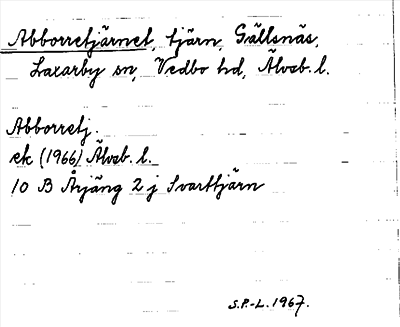 Abborretjärnet, tjärn, Gällsnäs,
Laxarby sn, Vedbo hd, Älvsb. l.
Abborretj.
ek (1966) Älvsb. l.
10 B Årjäng 2 j Svarttjärn
S.P.-L. 1967.